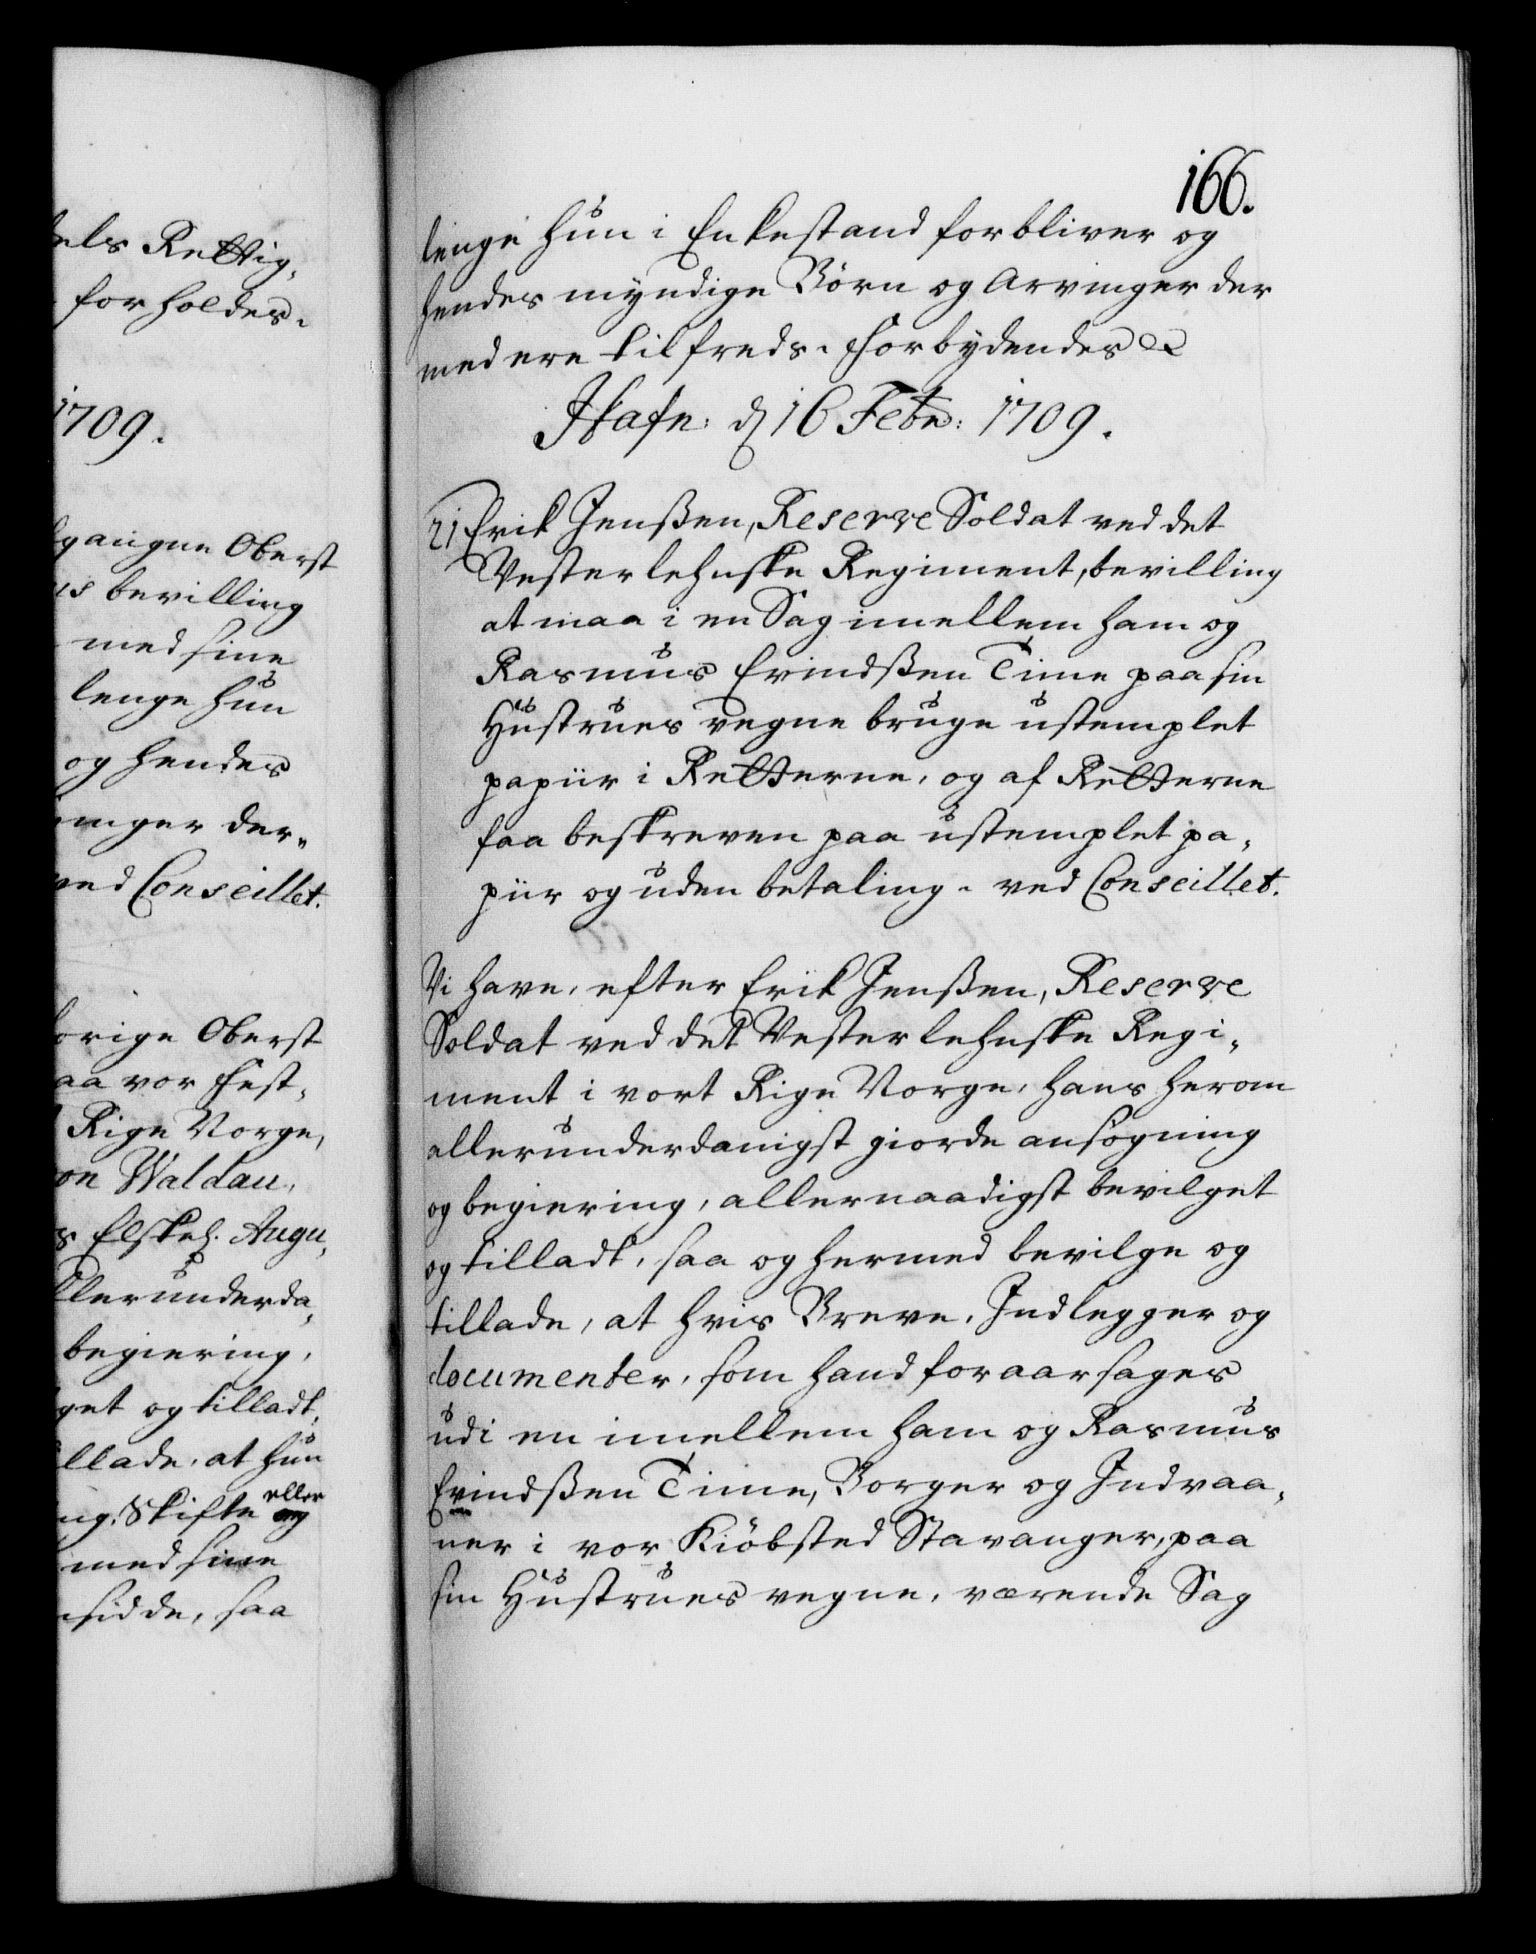 els Rettig,
forholdes.
1709.
gangne Oberst
bevilling
med sine
lenge hun
og hendes
inger der,
ved Conseillet.
forige Oberst
aa vor Fest,
Rige Norge,
on Waldau,
Elskel. Augu,
llerunderda,
begiering,
get og tilladt,
llade, at hun
Skifte eller
med sine
sidde, saa
166.
lenge hun i Enkestand forbliver og
hendes myndige Börn og Arvinger der
med ere tilfreds. Forbydendes &
Hafn: d 16 Febr: 1709.
21 Erik Jenßen, Reserve Soldat ved det
Vesterlehnske Regiment, bevilling
at maa i en Sag imellem ham og
Rasmus Evindßen Time paa sin
Hustrues vegne bruge ustemplet
papiir i Retterne, og af Retterne
faa beskreven paa ustemplet pa,
piir og uden betaling. ved Conseillet.
Vi have, efter Erik Jenßen, Reserve
Soldat ved det Vesterlehnske Regi,
ment i vort Rige Norge, hans herom
allerunderdanigst giorde ansögning
og begiering, allernaadigst bevilget
og tilladt, saa og hermed bevilge og
tillade, at hvis Breve, Indlegger og
documenter, som hand foraarsages
udi en imellem ham og Rasmus
Evindßen Time, Borger og Indvaa,
ner i vor Kiöbsted Stavanger, paa
sin Hustrues vegne, værende Sag